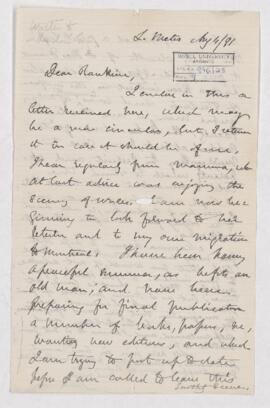 L. Metis Aug 4/81
McGILL UNIVERSITY
ARCHIVES
Dear Rankine,
I enclose in this a
letter received here, which may
be a mere circular, but I return
it in case it should be of use.
I hear regularly from mamma, who
at last advice was enjoying the
scenery of Wales. I am now be-
ginning to look forward to her
return and to my own migration
to Montreal. I have been having
a peaceful summer, as befits an
old man; and have been
preparing for final publication
a number of books, papers, &c,
wanting new editions, and which
I am trying to post up to date
before I am called to leave this
earthly scene.